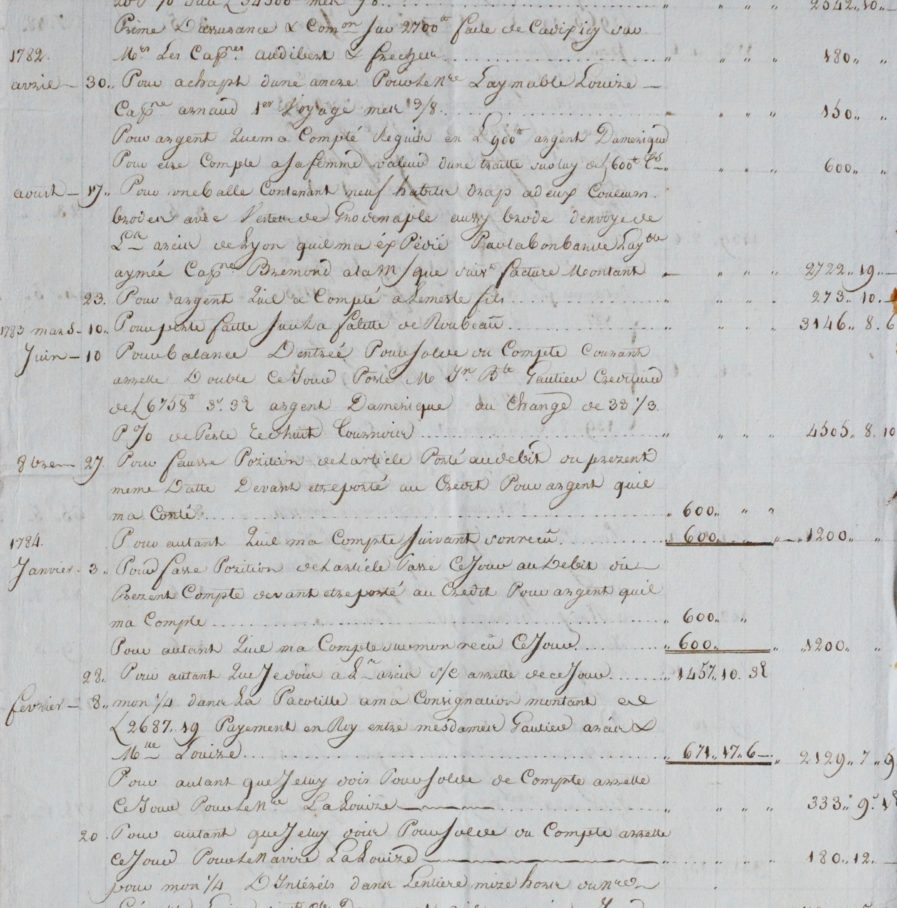 Prime Dassurance & Com.on Sur 2700tt faite de Cadix icy sur
1782. Mrs Les Capnes audibert & frecheur 180 „ „
avril 30 „ Pour achapt dune ancre Pour Le Nre Laymable Louize
Capne arnaud 1er Voyage 150 „ „
Pour argent Quema Compté argent Damerique
Pour etre Compté a Sa femme valeur dune traitte sur luy de L600tt 600 „ „
aoust 17 „ Pour une balle Contenant neuf habits drap a deux Couleurs
brodés avec Vestes de Gros de naple aussy brodé denvoy de
de Lyon quil ma éxPédié Par la bonbarde Lay
aymée Capne Bremond a la M/que suivt facture Montant 2722 „ 19 „
23 „ Pour argent Quil a Compté a Lemesle fils 273 „ 10 „
1783 mars 10 „ Pour perte faitte Sur La faillite de Roubeau 3146 „ 8 „ 6
Juin 10 Pour balance Dentrée Pour Solde du Compte Courant
arretté Double Ce Jour Porté M Jn Bte Gautier Crediteur
de L6758tt 3s. 3d argent Damerique au Change de 33 1/3
P% de Perte 4505 „ 8 „ 10
8bre 27 Pour fausse Pozition de Larticle Porté au debit du prezent
meme Datte Devant etre porté au Credit Pour argent quil
ma Conté „ 600 „ „
1784. Pour autant Quil ma Compté Suivant son recu „ 600 „ „ 1200 „ „
Janvier 3 „ Pour fasse Pozition de Larticle Passé Ce Jour au Debit du
Prezent Compte devant etre porté au Credit Pour argent quil
ma Compté „ 600 „ „
Pour autant Quil ma Compté sur mon recu Ce Jour „ 600 „ „ 1200 „ „
28 „ Pour autant Que Je dois a s/c arretté de ce Jour „ 1457 „ 10 „ 3d
fevrier 8 „ mon 1/4 dans La Pacotille a ma Consignation montant
L2687 „ 19 Payement en Riz entre mesdames Gautier &
Mlle Louize „ 671 „ 17 „ 6 „ 2129 „ 7 „ 9
Pour autant que Je luy dois Pour Solde de Compte arretté
Ce Jour Pour Le Nre La Louize 333 „ 9 „
20 „ Pour autant que Je luy dois Pour Solde du Compte arretté
Ce Jour Pour Le Navire La Louize 180 „ 12 „
pour mon 1/4 DIntérêts dans Lentiere mize hors du Nre